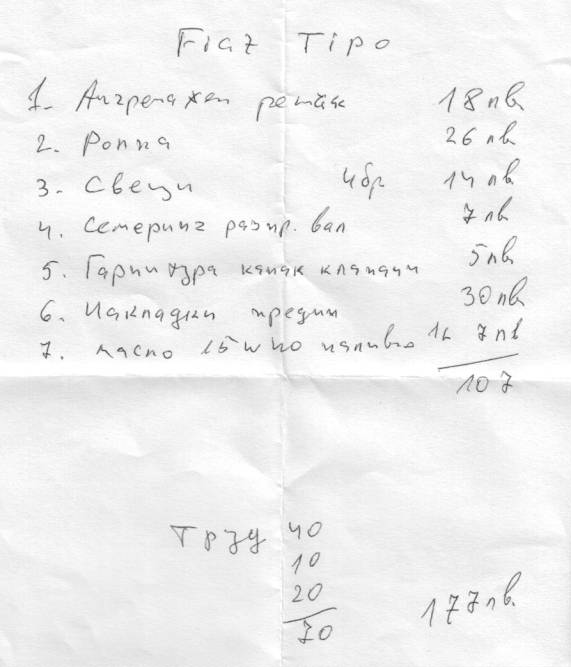 Fiat Tipo
1. Ангренажен ремък 18 лв
2. Ролка 26 лв
3. Свещи 4бр 14 лв
4. Семеринг разпр. вал 7 лв
5. Гарнитура капак клапани 5 лв
6. Накладки предни 30 лв
7. масло 15w40 наливно 1L 7 лв
107
Труд 40
10
20
70
177 лв.